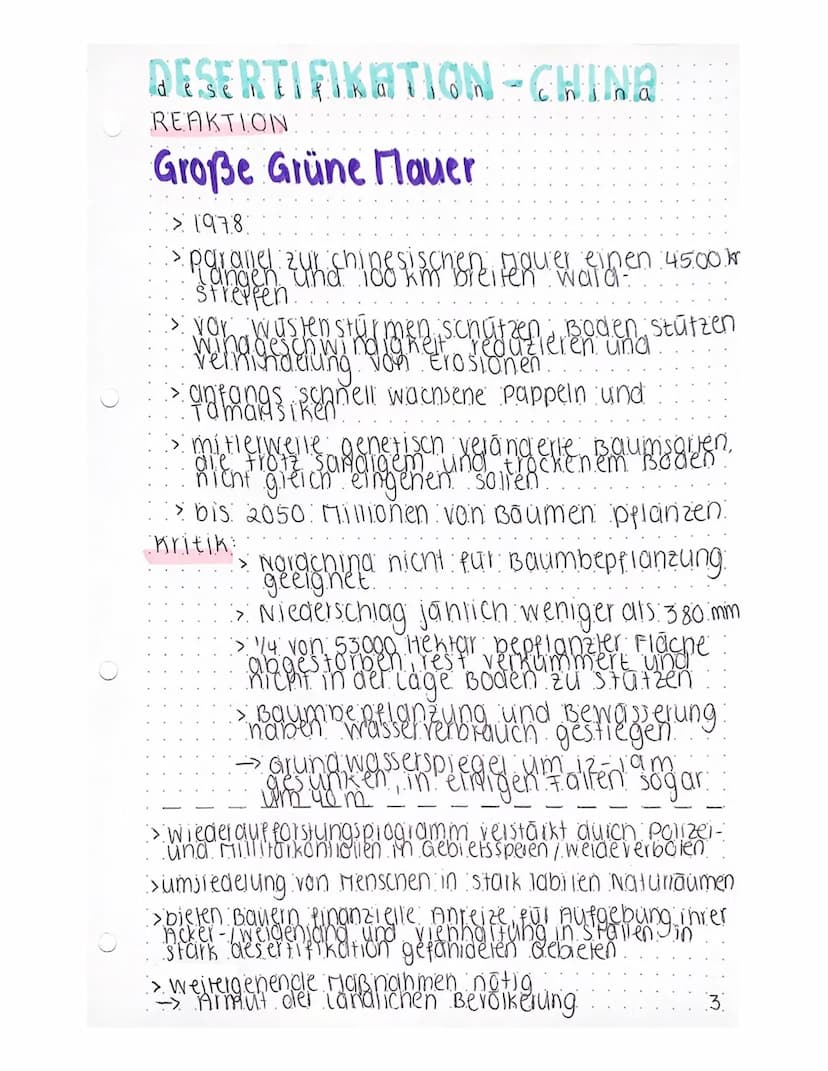 DESERTIFIKATION - CHINA
desertifikation - china
REAKTION
Große Grüne Mauer
> 1978
> parallel zur chinesischen Mauer einen 4500 k
langen und 100 km breiten Wald-
streifen
> vor Wüstenstürmen schützen, Boden stützen
Windgeschwindigkeit reduzieren und
Verhinderung von Erosionen
> anfangs schnell wachsene Pappeln und
Tamarisiken
> mitlerweile genetisch veränderte Baumsorten,
die trotz sandigem und trockenem Boden
nicht gleich eingehen sollen
> bis 2050 Millionen von Bäumen pflanzen
Kritik:
> Nordchina nicht für Baumbepflanzung
geeignet
> Niederschlag jährlich weniger als 380 mm
> 1/4 von 53000 Hektar bepflanzter Fläche
abgestorben, rest verkümmert und
nicht in der Lage Boden zu stützen
> Baumbepflanzung und Bewässerung
haben Wasserverbrauch gestiegen
→ Grundwasserspiegel um 12-19m
gesunken, in einigen Fällen sogar
um 40 m
> Wiederaufforstungsprogramm verstärkt durch Polizei-
und Militärkontrollen in Gebietssperen/Weideverboten
> umsiedelung von Menschen in stark labilen Naturräumen
> bieten Bauern finanzielle Anreize für Aufgebung ihrer
Acker-/Weidenland und Viehhaltung in Ställen in
stark desertifikation gefährdeten Gebieten
> Weitergehende Maßnahmen nötig
→ Armut der ländlichen Bevölkerung
3